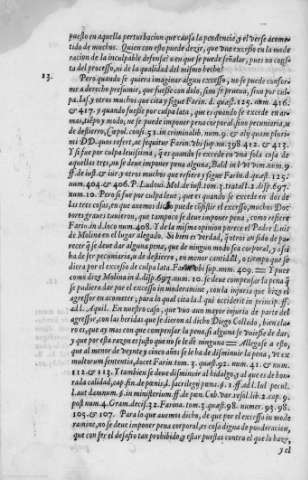 puesto en aquella perturbacion que causa la pendencia, y el verse acometido
de muchos. Quien con esto puede dezir, que vuo excesso en la moderacion
de la inculpable defensa? o en que se puede señalar, pues no consta
del processo, ni de la qualidad del mismo hecho?
13. Pero quando se quiera imaginar algun excesso, no se puede conforme
a derecho presumir, que fuesse con dolo, sino se prueua, sino por culpa.
Laf. y otros muchos que cita y sigue Farin. d. quæst. 125. num. 416.
& 417. y quando fuesse por culpa lata, que es quando se excede en armas,
tiempo y modo, no se puede imponer pena corporal, sino pecuniaria, u
de destierro, Capol. conf. 53. in criminalib. num. 9. & aly quam plurimi
DD. quos refert, ac sequitur Farin. vbi sup. nu. 398 412. & 413.
Y si fue por culpa leuissima, que es quando se excede en vna sola cosa de
aquellas tres, no se deue imponer pena alguna, Bald. in l. vt vim num. 9
ff. de iust. & iur. y otros muchos que refiere y sigue Farin. d. quæst. 125.
num. 404 & 406. P. Ludoui. Mol. de iust. tom. 3. tratat 1. disp. 697.
num. 10. Pero si fue por culpa leue, que es quando se excede en dos de
las tres cosas, en que auemos dicho puede consistir el excesso, muchos Doctores
graues tuuieron, que tampoco se deue imponer pena, como refiere
Farin. d. loco num. 408. Y de la misma opinion parece el Padre Luis
de Molina en el lugar alegado. Si bien es verdad, que otros an sido de parecer
que se deue dar alguna pena, que de ningun modo sea corporal, y assi
ha de ser pecuniaria, u de destierro, en menor cantidad, o tiempo que se
diera por el excesso de culpa lata. Farin. vbi sup. num. 409. Y pues
como dize Molina in d. disp. 697. num. 10. se deue compensar la pena que
se pudiera dar por el excesso in moderamine, con la injuria que hizo el
agressor en acometer; para la qual cita la l. qui occiderit in princip. ff.
ad l. Aquil. En nuestro caso, que vuo aun mayor injuria de parte del
agressor, con las heridas que hizieron al dicho Diego Collado, bien claro
es, que ay mas con que compensar la pena, si alguna se vuiesse de dar,
y que por esta razon es justo que no se le dè ninguna. Allegase a esto,
que al menor de veynte y cinco años se le ha de disminuir la pena, vt ex
multorum sententia, docet Farin. tom. 3. quæst. 92. num. 41. & num.
112. & 113. Y tambien se deue disminuir al hidalgo, y al que es de honrada
calidad, cap. fin. de pœnis, l. sacrilegij pœna. §. 1. ff. ad l. Iul. pecul.
l. aut damnum. §. in ministerium. ff. de pœn.
post num. 4. Gram. decis. 32. Farina. tom. 3. quæst. 98. numer. 93. 98.
105. & 107. Para lo que auemos dicho, de que por el excesso in moderamine,
no se deue imponer pena corporal, es cosa digna de ponderacion,
que con ser el desafio tan prohibido, y estar puestas contra el que lo haze,
y el